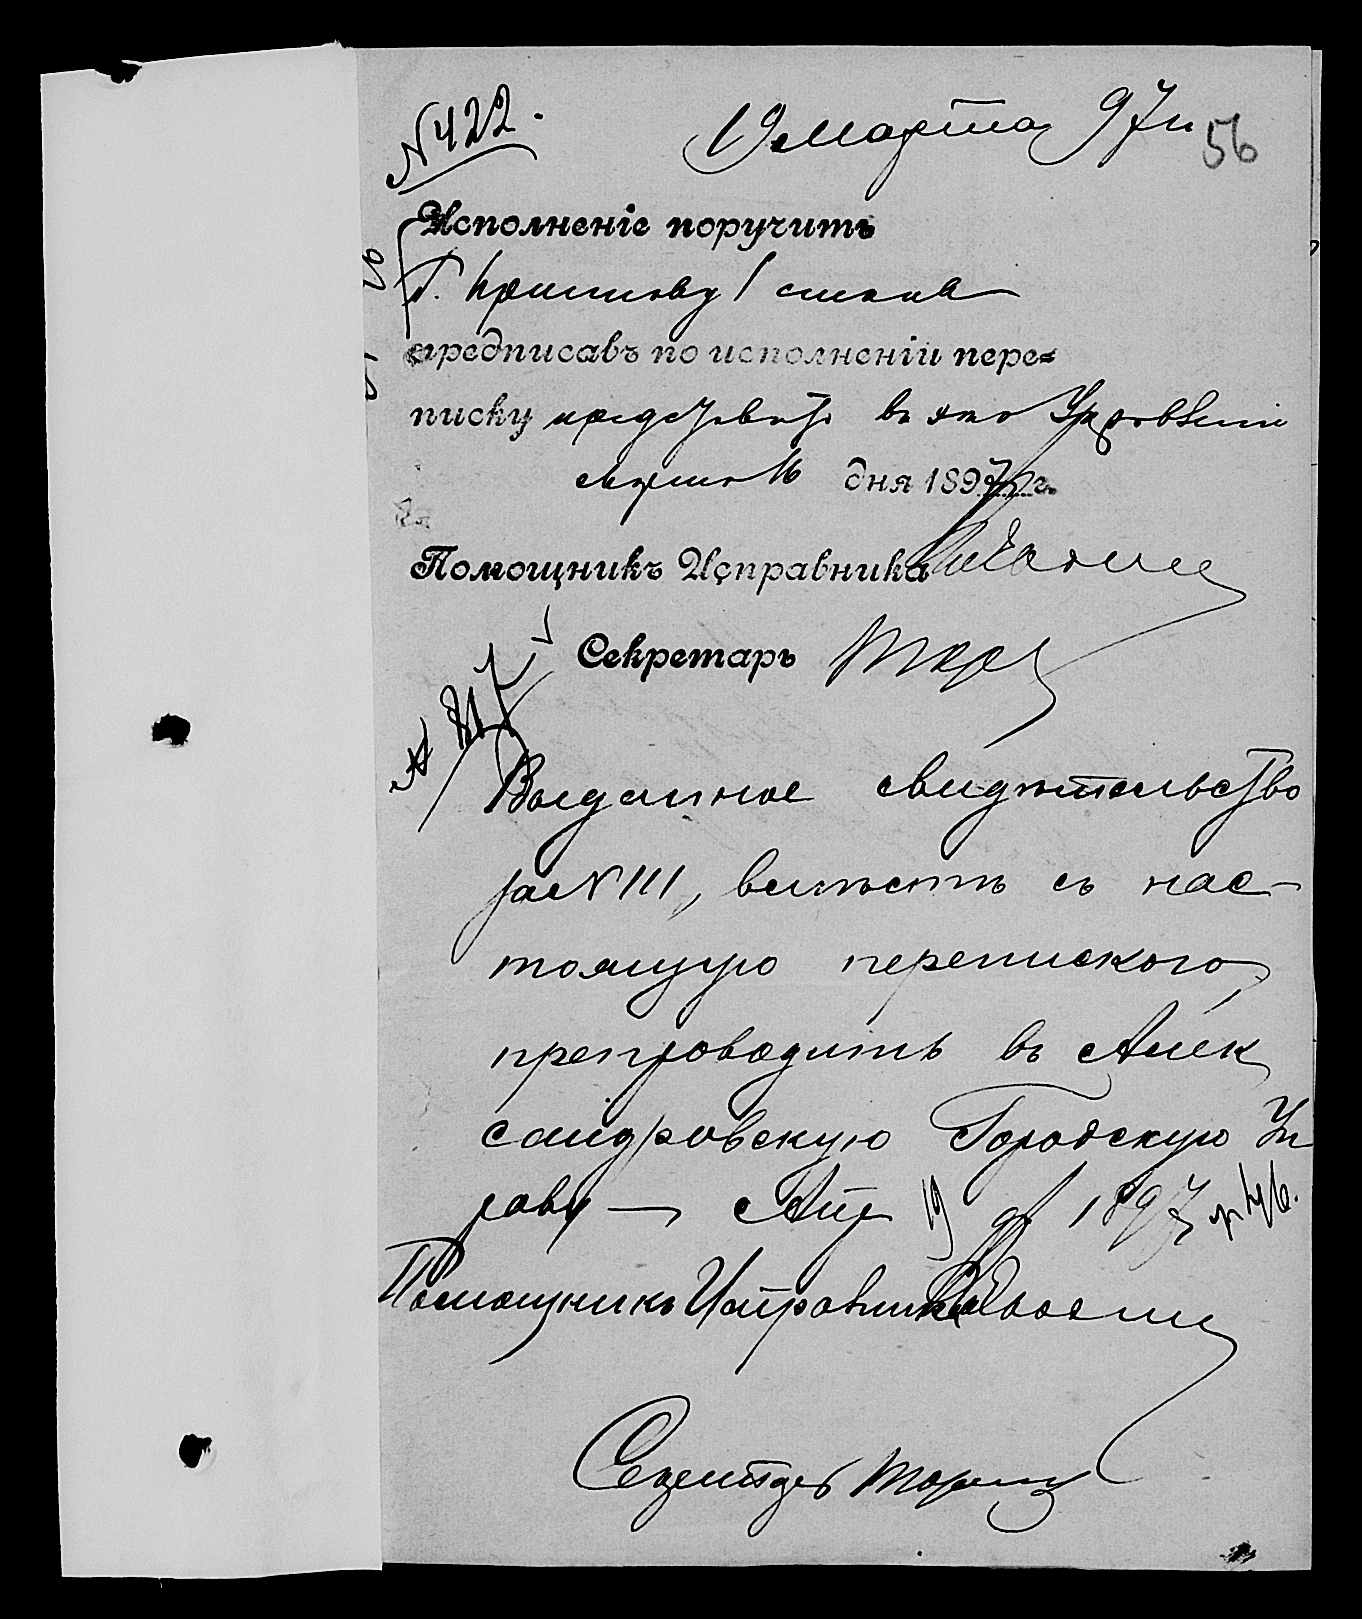 № 422.
19 Марта 97 г.
56
Исполненіе поручить
Г. 1 стана
предписавъ по исполненіи пере=
писку представить въ это Управленіе
марта 16 дня 1897 г.
Помощникъ Исправника
Секретарь
№
Выданное свидѣтельство
за № 111, вмѣстѣ съ нас-
тоящую перепискою,
препроводить въ Алек
сандровскую Городскую Уп
раву — Апр 19 д 1897
Помощникъ Исправника
Секретарь